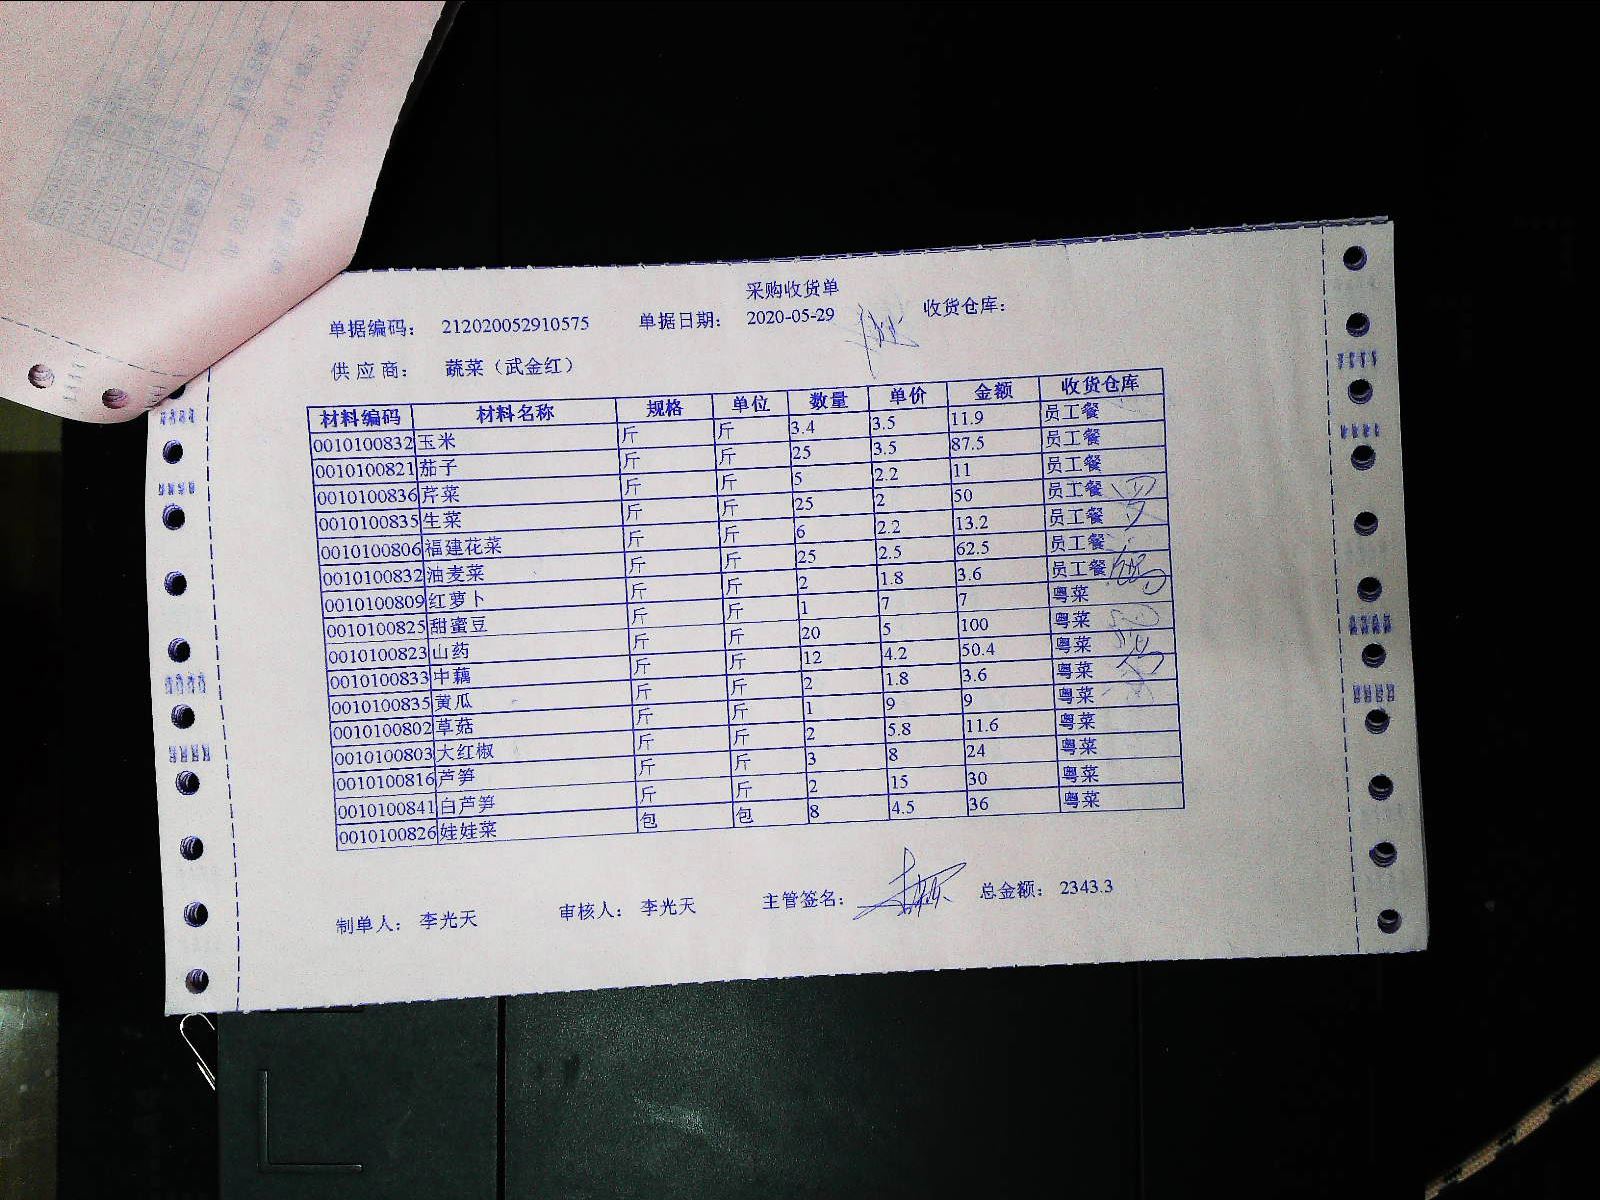 采购收货单
单据编码： 212020052910575 单据日期： 2020-05-29 收货仓库：
供应商： 蔬菜（武金红）
材料编码 材料名称 规格 单位 数量 单价 金额 收货仓库
0010100832 玉米 斤 斤 3.4 3.5 11.9 员工餐
0010100821 茄子 斤 斤 25 3.5 87.5 员工餐
0010100836 芹菜 斤 斤 5 2.2 11 员工餐
0010100835 生菜 斤 斤 25 2 50 员工餐
0010100806 福建花菜 斤 斤 6 2.2 13.2 员工餐
0010100832 油麦菜 斤 斤 25 2.5 62.5 员工餐
0010100809 红萝卜 斤 斤 2 1.8 3.6 员工餐
0010100825 甜蜜豆 斤 斤 1 7 7 粤菜
0010100823 山药 斤 斤 20 5 100 粤菜
0010100833 中藕 斤 斤 12 4.2 50.4 粤菜
0010100835 黄瓜 斤 斤 2 1.8 3.6 粤菜
0010100802 草菇 斤 斤 1 9 9 粤菜
0010100803 大红椒 斤 斤 2 5.8 11.6 粤菜
0010100816 芦笋 斤 斤 3 8 24 粤菜
0010100841 白芦笋 斤 斤 2 15 30 粤菜
0010100826 娃娃菜 包 包 8 4.5 36 粤菜
制单人： 李光天 审核人： 李光天 主管签名： 总金额： 2343.3